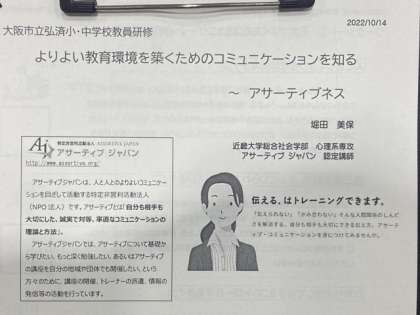 2022/10/14
大阪市立弘済小・中学校教員研修
よりよい教育環境を築くためのコミュニケーションを知る
～ アサーティブネス
堀田 美保
近畿大学総合社会学部 心理系専攻
アサーティブ ジャパン 認定講師
特定非営利活動法人 ASSERTIVE JAPAN
アサーティブ ジャパン
http://www.assertive.org/
アサーティブジャパンは、人と人とのよりよいコミュニケー
ションを目ざして活動する特定非営利活動法人
(NPO法人)です。アサーティブとは「自分も相手も
大切にした、誠実で対等、率直なコミュニケーションの
理論と方法」。
アサーティブジャパンでは、アサーティブについて基礎か
ら学びたい、もっと深く勉強したい、あるいはアサーティブ
の講座を自分の地域や団体でも開催したい、という
方々のために、講座の開催、トレーナーの派遣、情報の
発信等の活動を行っています。
伝える。はトレーニングできます。
「伝えられない」「かみ合わない」そんな人間関係のしんど
さを解消する、自分も相手も大切にできる伝え方。アサーテ
ィブ・コミュニケーションを身につけてみませんか。